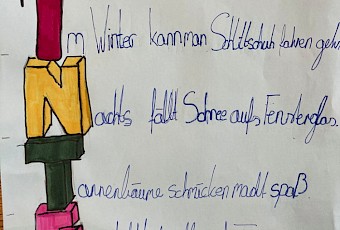 Im Winter kann man Schlittschuh fahren gehn
Nachts fällt Schnee aufs Fensterglas.
Tannenbäume schmücken macht spaß